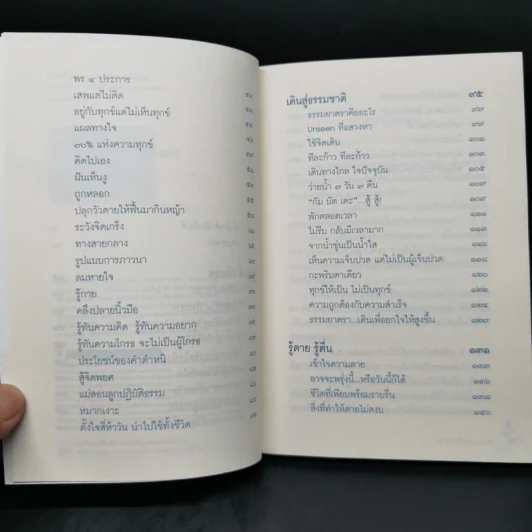 พร ๔ ประการ
เสพแต่ไม่ติด
อยู่กับทุกข์แต่ไม่เห็นทุกข์
แผลทางใจ
๓๐% แห่งความทุกข์
คิดไปเอง
ฝันเห็นงู
ถูกหลอก
ปลุกวัวตายให้ฟื้นมากินหญ้า
ระวังจิตเกร็ง
ทางสายกลาง
รูปแบบการภาวนา
ลมหายใจ
รู้กาย
คลึงปลายนิ้วมือ
รู้ทันความคิด รู้ทันความอยาก
รู้ทันความโกรธ จะไม่เป็นผู้โกรธ
ประโยชน์ของคำตำหนิ
สู้จิตพยศ
แม่สอนลูกปฏิบัติธรรม
หมากเงาะ
ตั้งใจสี่ห้าวัน นำไปใช้ทั้งชีวิต
เดินสู่ธรรมชาติ ๙๕
ธรรมยาตราคืออะไร ๙๗
Unseen ที่แสวงหา ๙๙
ใช้จิตเดิน ๑๐๑
ทีละก้าว ทีละก้าว ๑๐๓
เดินทางไกล ใจปัจจุบัน ๑๐๕
ว่ายน้ำ ๓ วัน ๓ คืน ๑๐๗
"กัม บัต เตะ"...สู้ สู้! ๑๐๙
พักตลอดเวลา ๑๑๑
ไม่รีบ กลับมีเวลามาก
จากน้ำขุ่นเป็นน้ำใส ๑๑๖
เห็นความเจ็บปวด แต่ไม่เป็นผู้เจ็บปวด ๑๑๘
กะพริบตาเดียว ๑๒๐
ทุกข์ให้เป็น ไม่เป็นทุกข์ ๑๒๒
ความถูกต้องกับความสำเร็จ ๑๒๔
ธรรมยาตรา...เดินเพื่อยกใจให้สูงขึ้น ๑๒๗
รู้ตาย รู้ตื่น ๑๓๑
เข้าใจความตาย
อาจจะพรุ่งนี้...หรือวันนี้ก็ได้ ๑๓๖
ชีวิตที่เพียบพร้อมราบรื่น
สิ่งที่ทำให้ตายไม่สงบ ๑๔๐